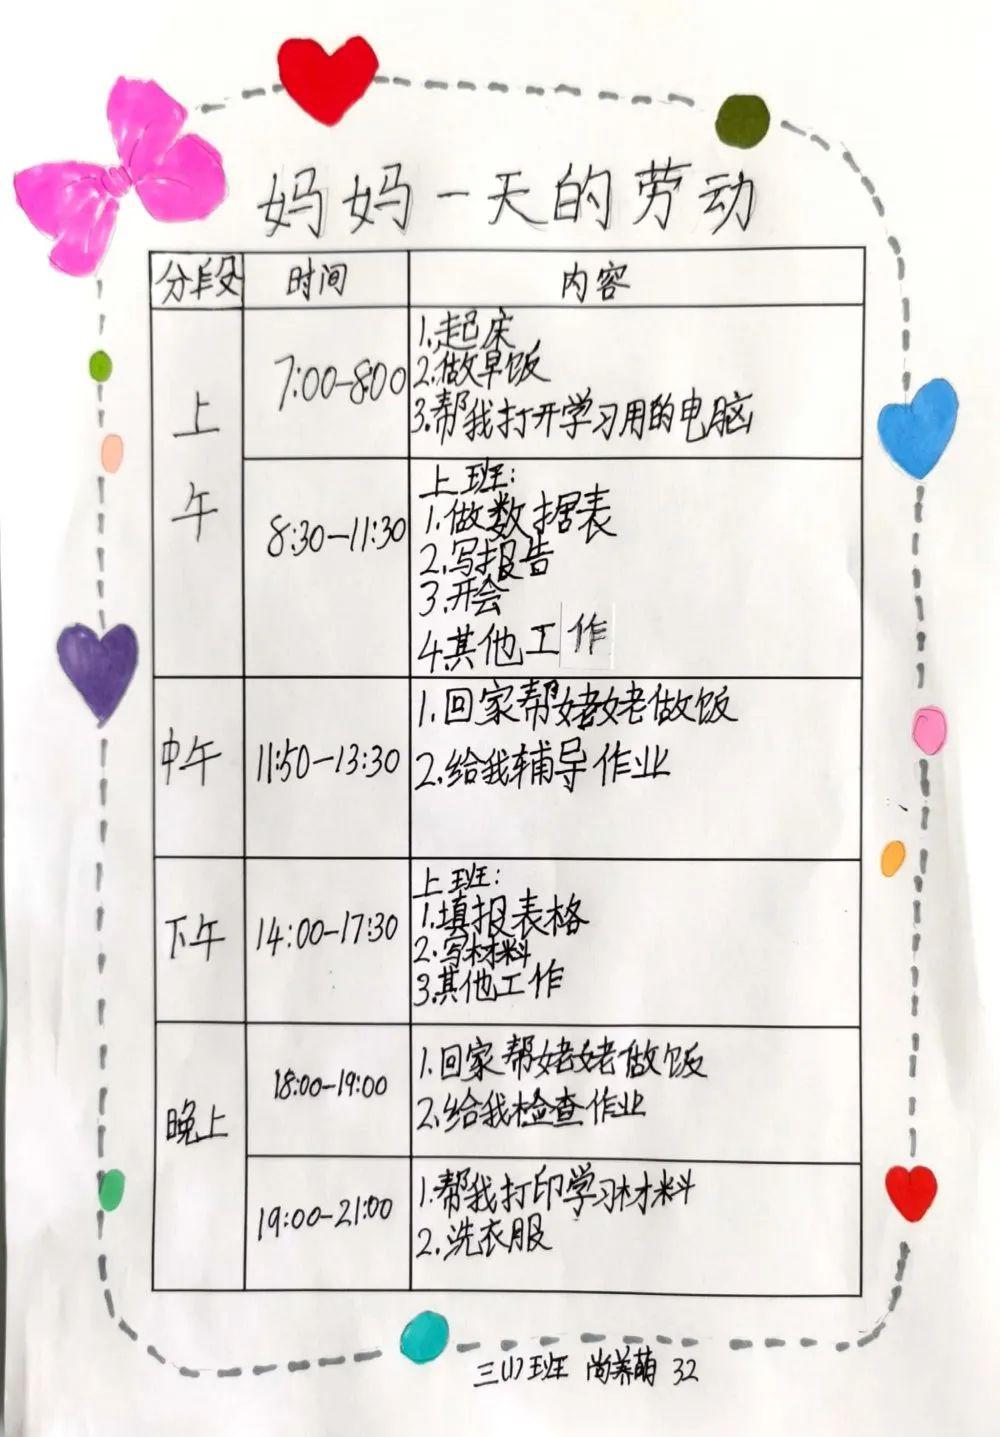 妈妈一天的劳动
分段 时间 内容
上午
7:00-8:00
1.起床
2.做早饭
3.帮我打开学习用的电脑
8:30-11:30
上班:
1.做数据表
2.写报告
3.开会
4.其他工作
中午
11:50-13:30
1.回家帮姥姥做饭
2.给我辅导作业
下午
14:00-17:30
上班:
1.填报表格
2.写材料
3.其他工作
晚上
18:00-19:00
1.回家帮姥姥做饭
2.给我检查作业
19:00-21:00
1.帮我打印学习材料
2.洗衣服
三(1)班 尚养萌 32